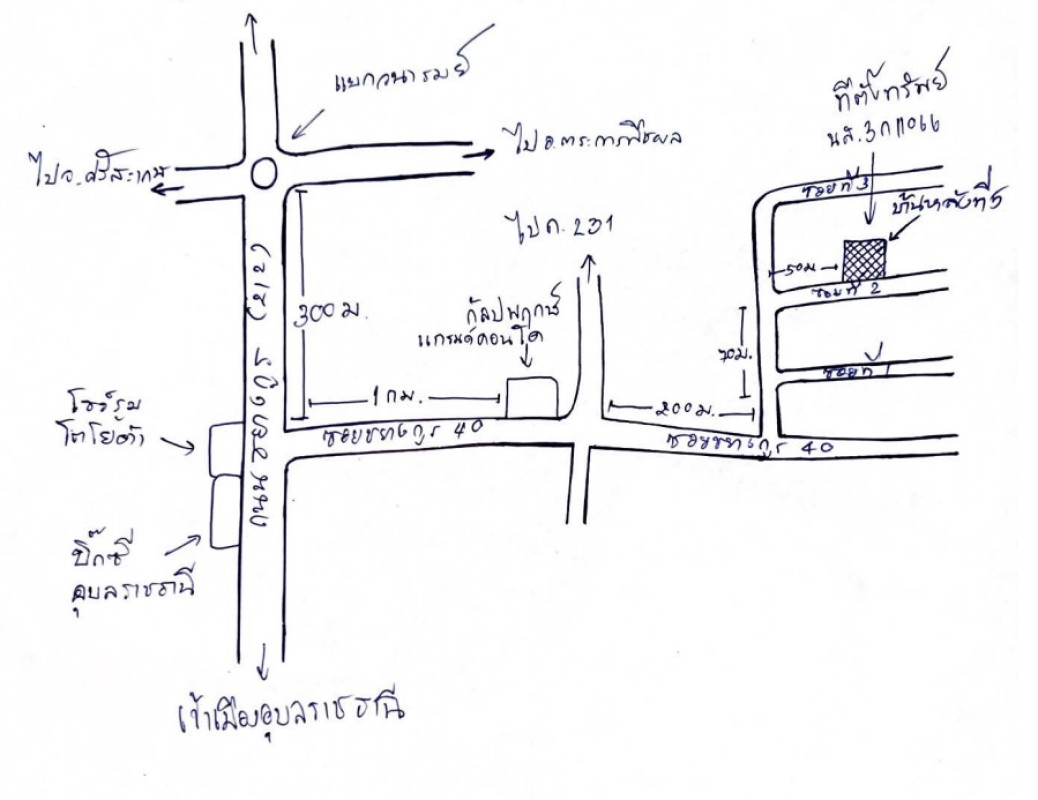 แยกวนารมย์
ที่ตั้งทรัพย์
นส.3ก11066
ไป จ.ศรีสะเกษ
ไป อ.ตระการพืชผล
ซอยที่ 3
บ้านหลังที่5
ไป ถ. 231
50ม
ซอยที่ 2
300 ม.
กัลปพฤกษ์
แกรนด์คอนโด
70ม.
ซอยที่ 1
1 กม.
200 ม.
โชว์รูม
โตโยต้า
ซอยชยางกูร 40
ซอยชยางกูร 40
ถนนเลี่ยงเมือง (212)
บิ๊กซี
อุบลราชธานี
เข้าเมืองอุบลราชธานี